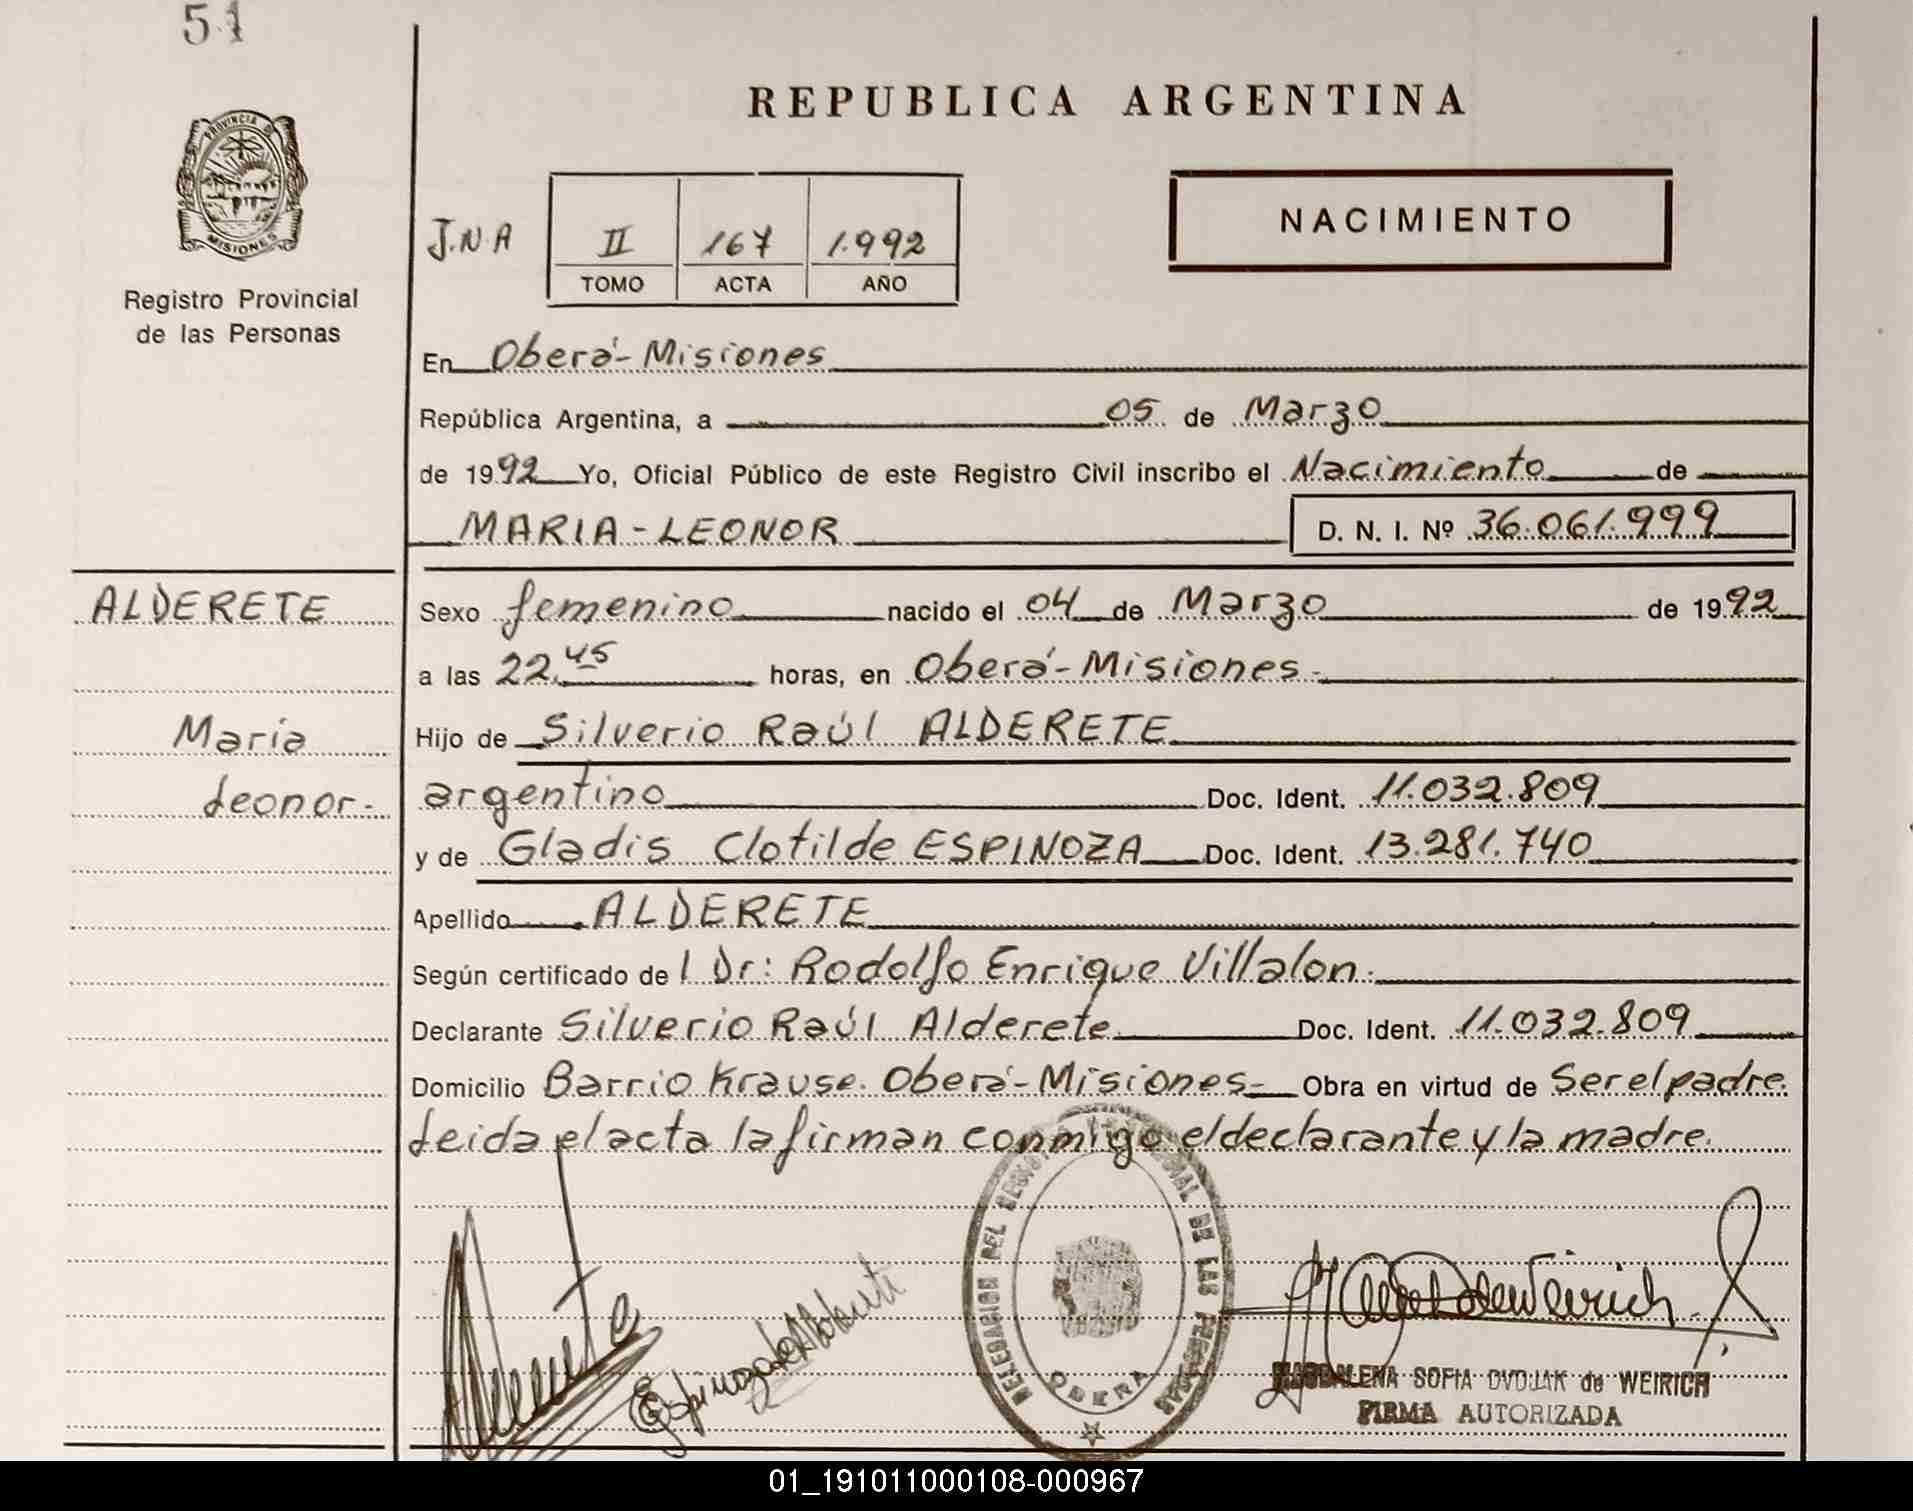 51
REPUBLICA ARGENTINA
PROVINCIA DE
MISIONES
Registro Provincial
de las Personas
J.N.A
II 167 1.992
TOMO ACTA AÑO
NACIMIENTO
En Oberá-Misiones
República Argentina, a 05 de Marzo
de 1992 Yo, Oficial Público de este Registro Civil inscribo el Nacimiento de
MARIA-LEONOR D. N. I. Nº 36.061.999
ALDERETE
María
Leonor.-
Sexo femenino nacido el 04 de Marzo de 1992
a las 22.45 horas, en Oberá-Misiones.-
Hijo de Silverio Raúl ALDERETE
argentino Doc. Ident. 11.032.809
y de Gladis Clotilde ESPINOZA Doc. Ident. 13.281.740
Apellido ALDERETE
Según certificado de l Dr: Rodolfo Enrique Villalon.
Declarante Silverio Raúl Alderete Doc. Ident. 11.032.809
Domicilio Barrio Krause. Oberá-Misiones- Obra en virtud de Ser el padre.
Leida el acta la firman conmigo el declarante y la madre.
DELEGACION DEL REGISTRO PROVINCIAL DE LAS PERSONAS
OBERA
Espinoza de Alderete
MAGDALENA SOFIA DVOJAK de WEIRICH
FIRMA AUTORIZADA
01_191011000108-000967